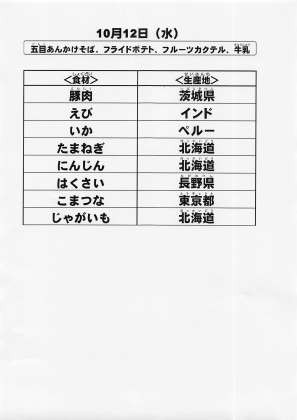 10月12日（水）
五目あんかけそば、フライドポテト、フルーツカクテル、牛乳
＜食材＞ ＜生産地＞
豚肉 茨城県
えび インド
いか ペルー
たまねぎ 北海道
にんじん 北海道
はくさい 長野県
こまつな 東京都
じゃがいも 北海道